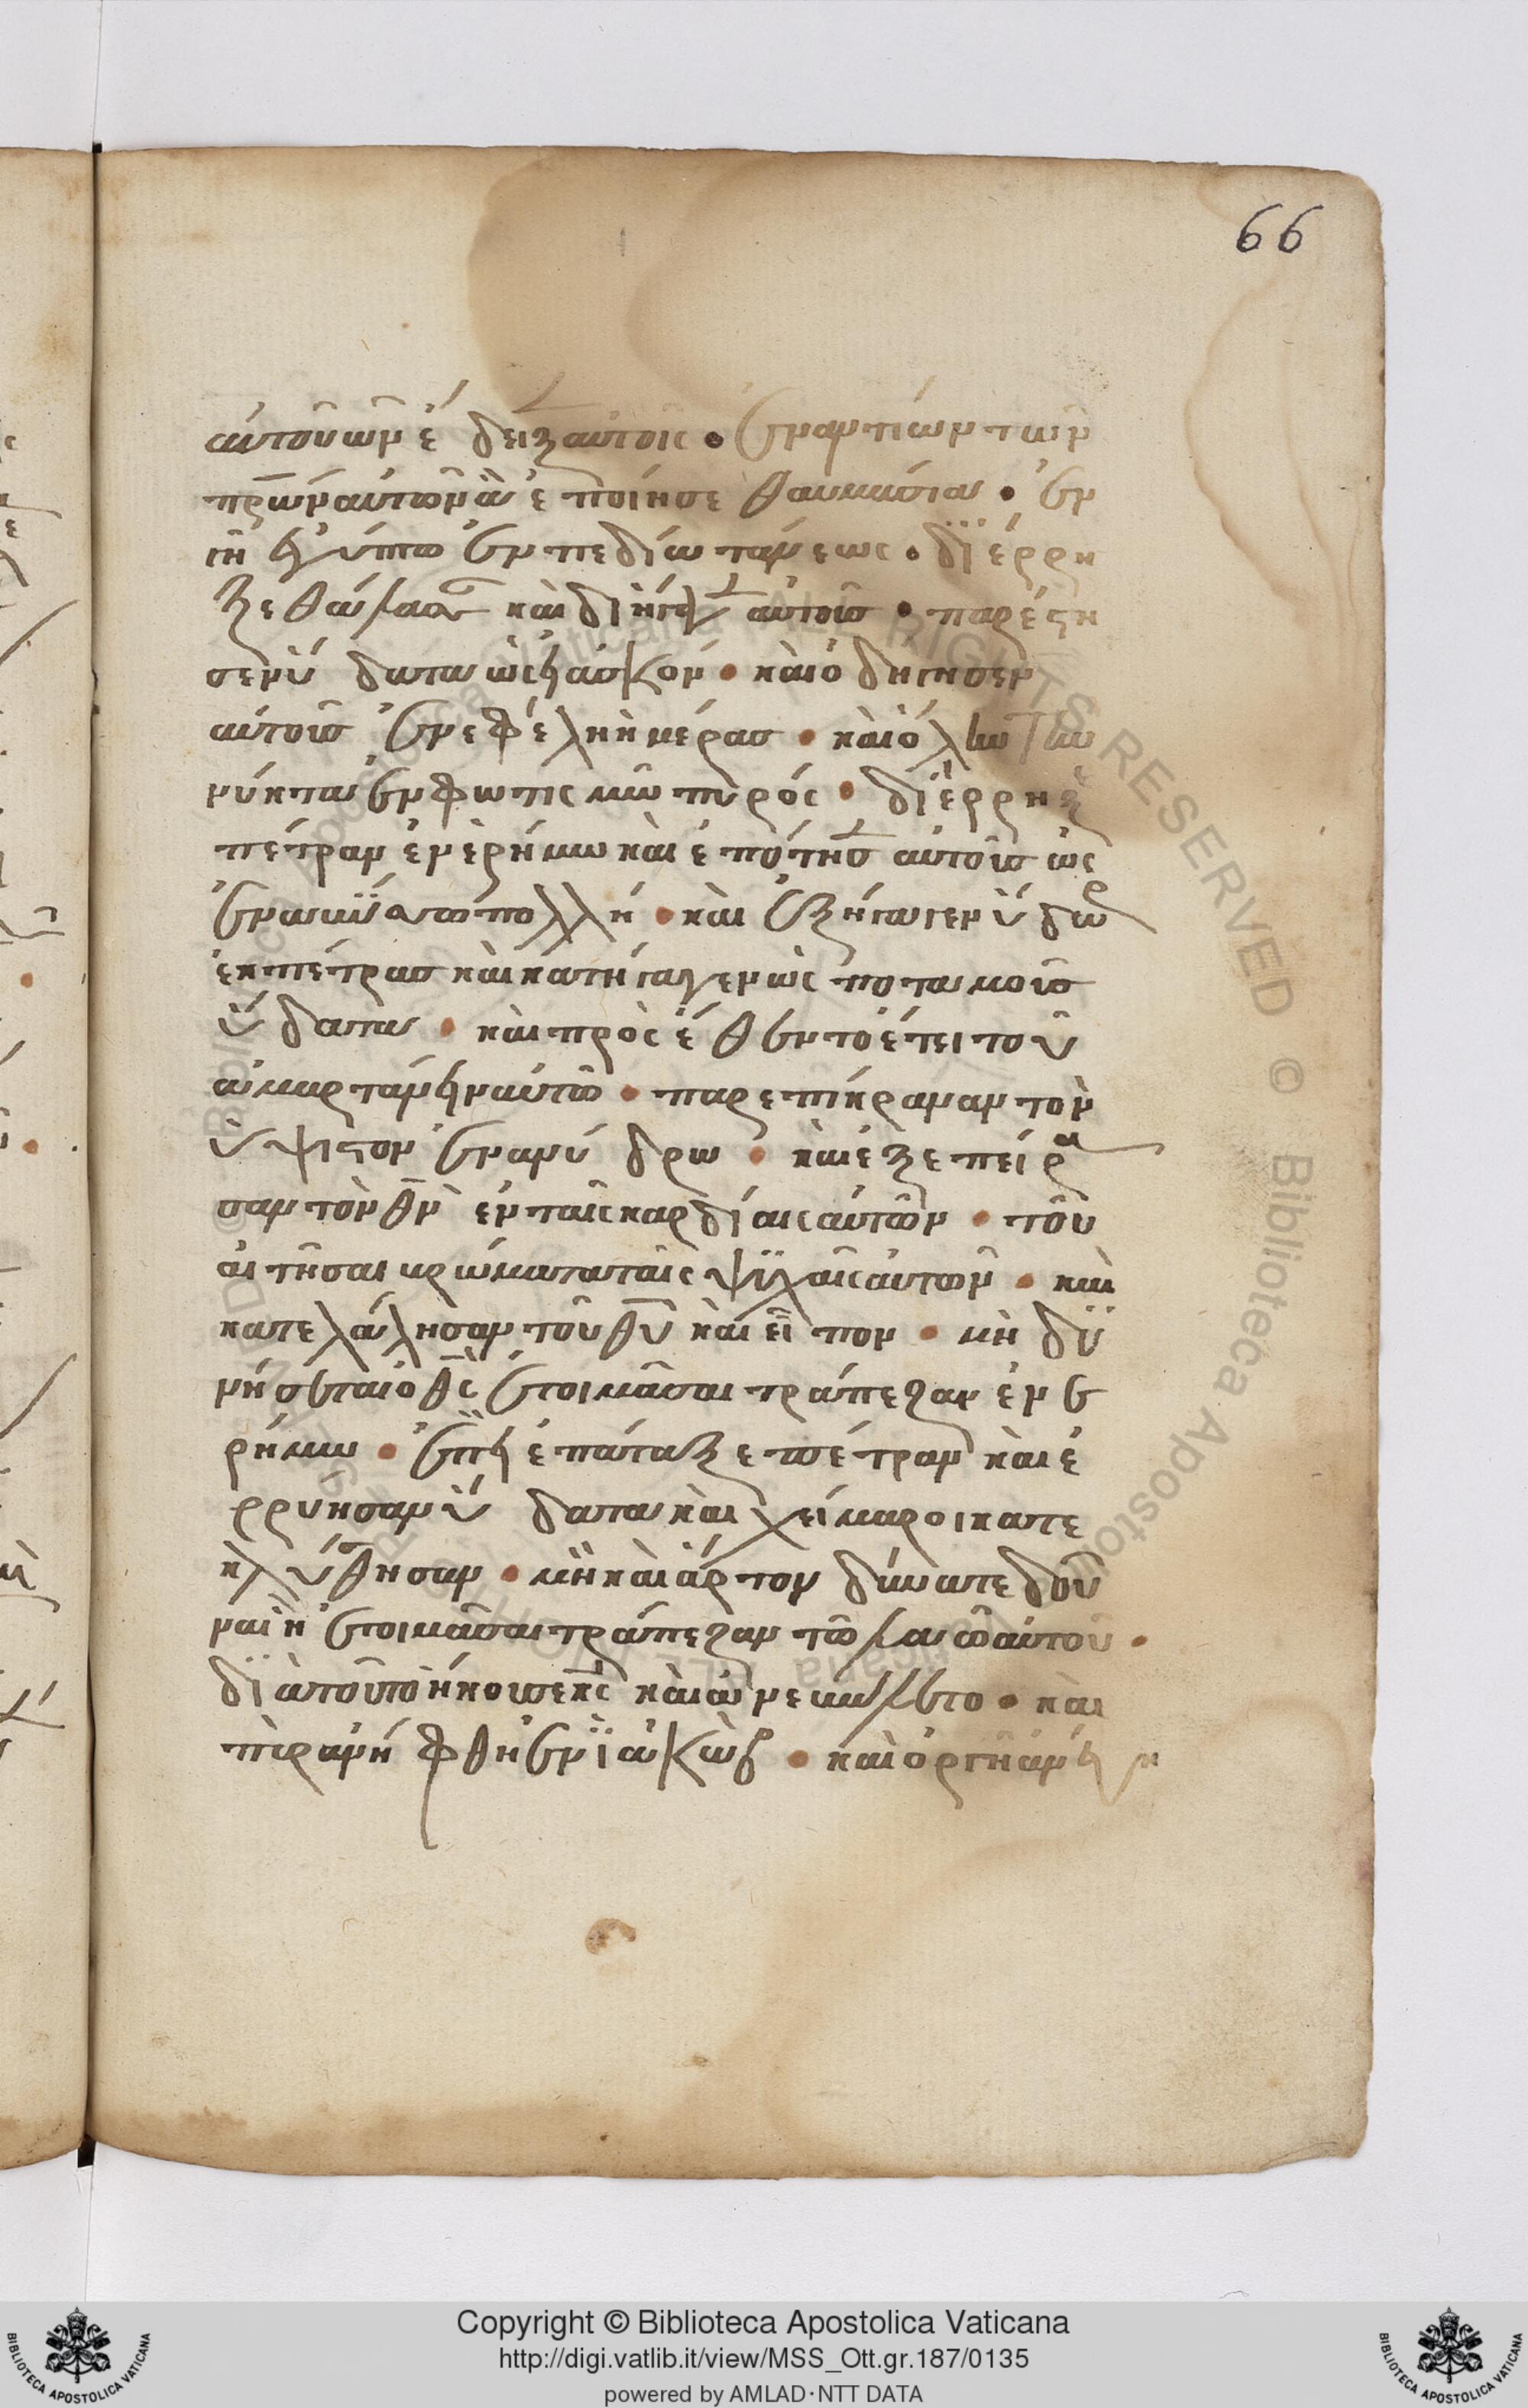 66
αὐτοῦ ὧν ἔδειξεν αὐτοῖς • ἐναντίον τῶν
πρων αὐτῶν ἃ ἐποίησε θαυμάσια • ἐν
γῆ ἐγύπτω ἐν πεδίω τάνεως • διέρρη
ξε θάλασσαν καὶ διήγαγεν αὐτοὺς • παρέστη
σεν ὕδατα ὡσεὶ ἀσκὸν • καὶ ὁδήγησεν
αὐτοὺς ἐν εφέλη ἡμέρας • καὶ ὅλην τὴν
νύκτα ἐν φωτισμῶ πυρός • διέρρηξε
πέτραν ἐν ἐρήμω καὶ ἐπότησεν αὐτοὺς ὡς
ἐν ἀβύσσω πολλῆ • καὶ ἐξήγαγεν ὕδωρ
ἐκ πέτρας καὶ κατήγαγεν ὡς ποταμοὺς
ὕδατα • καὶ προσέθεντο ἔτει τοῦ
ἁμαρτάνειν αὐτῶ • παρεπίκραναν τὸν
ὕψιστον ἐν ἀνύδρω • καὶ ἐξεπείρα
σαν τὸν θν ἐν ταῖς καρδίαις αὐτῶν • τοῦ
αἰτῆσαι βρώματα ταῖς ψυχαῖς αὐτῶν • καὶ
κατελάλησαν τοῦ θυ καὶ εἶπον • μὴ δυ
νήσεται ὁ θς ἑτοιμάσαι τράπεζαν ἐν ἐ
ρήμω • ἐπεὶ ἐπάταξε πέτραν καὶ ἐ
ρρύησαν ὕδατα καὶ χείμαροι κατε
κλύσθησαν • μὴ καὶ ἄρτον δύναται δοῦ
ναι ἢ ἑτοιμάσαι τράπεζαν τῶ λαῶ αὐτοῦ •
διὰ τοῦτο ἤκουσε κς καὶ ἀνεβάλλετο • καὶ
πῦρ ἀνήφθη ἐν ἰακώβ • καὶ ὀργὴ ἀνέβη
Copyright © Biblioteca Apostolica Vaticana
http://digi.vatlib.it/view/MSS_Ott.gr.187/0135
powered by AMLAD·NTT DATA